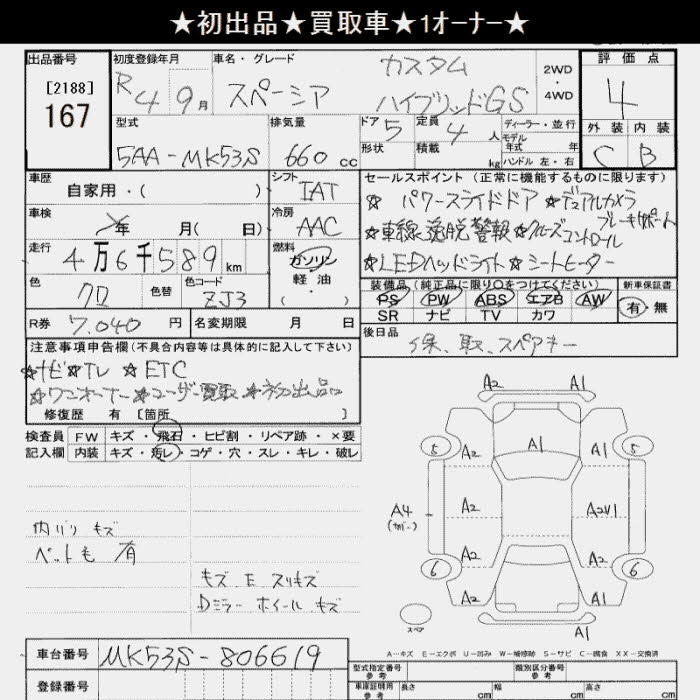 ★初出品★買取車★1ｵｰﾅｰ★
出品番号
[2188]
167
初度登録年月
R 4 9月
車名・グレード
スペーシア
カスタム
ハイブリッドGS
2WD
・
4WD
評価点
4
外装 内装
C B
型式
5AA-MK53S
排気量
660 cc
ドア 5
形状
定員 4 人
積載 kg
ディーラー・並行
モデル
年式 年
ハンドル 左・右
車歴
自家用・( )
シフト
IAT
車検
年 月( 日)
冷房
AAC
走行
4万6千589km
燃料
ガソリン
軽油
・( )
色
クロ
色替
色コード
ZJ3
R券 7,040 円
名変期限 月 日
セールスポイント (正常に機能するものに限ります)
☆ パワースライドドア ☆デュアルカメラ
ブレーキサポート
☆車線逸脱警報 ☆クルーズコントロール
☆LEDヘッドライト ☆シートヒーター
装備品(純正品に限り○をつけてください)
PS PW ABS エアB AW
SR ナビ TV カワ
新車保証書
有・無
後日品
保、取、スペアキー
注意事項申告欄(不具合内容等は具体的に記入して下さい)
☆ナビ☆TV ☆ETC
☆ワンオーナー ☆ユーザー買取 ☆初出品
修復歴 有 [箇所 ]
検査員 FW キズ・飛石・ヒビ割・リペア跡・×要
記入欄 内装 キズ・汚レ・コゲ・穴・スレ・キレ・破レ
内バリ キズ
ペットも 有
キズ E スリキズ
Dミラー ホイール キズ
A2 A1
5 A2 A1 A1 5
A4 A2 A2U1
6 A2 A2 6
A2 A1
スペア A1
A…キズ E…エクボ U…凹み W…補修跡 S…サビ C…腐食 XX…交換済
車台番号 MK53S-806619
登録番号
型式指定番号
参考
類別区分番号
参考
車庫証明用
参考
長さ cm 幅 cm 高さ cm